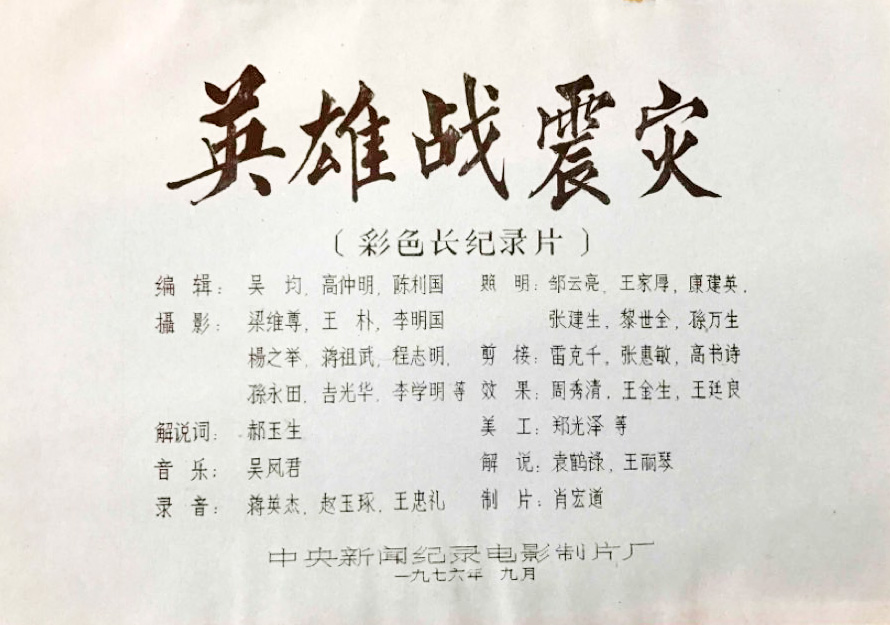 英雄战震灾
〔彩色长纪录片〕
编 辑：吴 均、高仲明、陈利国
攝 影：梁维尊、王 朴、李明国
楊之举、蒋祖武、程志明、
孫永田、吉光华、李学明 等
解说词：郝玉生
音 乐：吴风君
录 音：蒋英杰、赵玉琢、王忠礼
照 明：邹云亮、王家厚、康建英、
张建生、黎世全、孫万生
剪 接：雷克千、张惠敏、高书诗
效 果：周秀清、王金生、王廷良
美 工：郑光泽 等
解 说：袁鹤禄、王丽琴
制 片：肖宏道
中央新闻纪录电影制片厂
一九七六年 九月